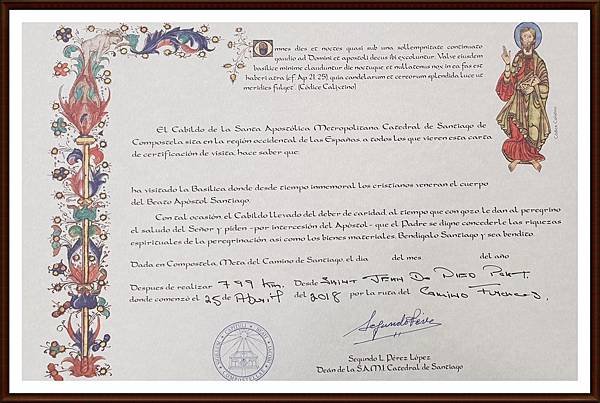 Omnes dies et noctes quasi sub una sollempnitate continuato
gaudio ad Domini et apostoli decus ibi excoluntur. Valve eiusdem
basilice minime clauduntur die noctuque et nullatenus nox in ea fas est
haberi atra [cf. Ap 21, 25], quia candelarum et cereorum splendida luce ut
meridies fulget. (Códice Calixtino)
El Cabildo de la Santa Apostólica Metropolitana Catedral de Santiago de
Compostela sita en la región occidental de las Españas, a todos los que vieren esta carta
de certificación de visita, hace saber que:
ha visitado la Basílica donde desde tiempo inmemorial los cristianos veneran el cuerpo
del Beato Apóstol Santiago.
Con tal ocasión, el Cabildo llevado del deber de caridad, al tiempo que con gozo le dan al peregrino
el saludo del Señor y piden -por intercesión del Apóstol- que el Padre se digne concederle las riquezas
espirituales de la peregrinación así como los bienes materiales. Bendígalo Santiago y sea bendito.
Dada en Compostela, Meta del Camino de Santiago, el día del mes del año
Despues de realizar 799 km. Desde Saint Jean Do Died Port.
donde comenzó el 25 de Abril del 2018 por la ruta del Camino Frances.
Segundo Pérez
Segundo L. Pérez López
Deán de la S.A.M.I. Catedral de Santiago